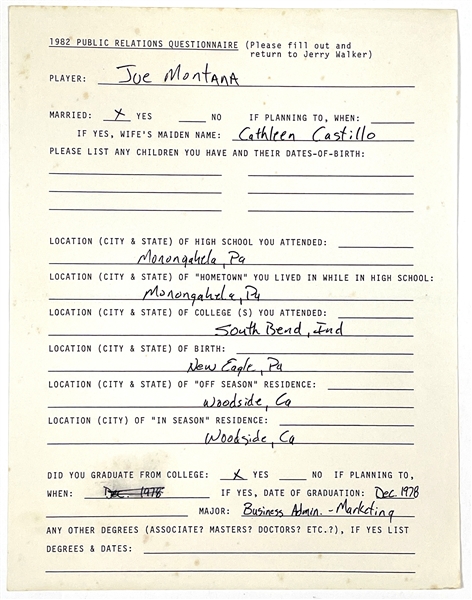 1982 PUBLIC RELATIONS QUESTIONNAIRE (Please fill out and
return to Jerry Walker)
PLAYER: Joe Montana
MARRIED: X YES NO IF PLANNING TO, WHEN:
IF YES, WIFE'S MAIDEN NAME: Cathleen Castillo
PLEASE LIST ANY CHILDREN YOU HAVE AND THEIR DATES-OF-BIRTH:
LOCATION (CITY & STATE) OF HIGH SCHOOL YOU ATTENDED:
Monongahela, Pa
LOCATION (CITY & STATE) OF "HOMETOWN" YOU LIVED IN WHILE IN HIGH SCHOOL:
Monongahela, Pa
LOCATION (CITY & STATE) OF COLLEGE (S) YOU ATTENDED:
South Bend, Ind
LOCATION (CITY & STATE) OF BIRTH:
New Eagle, Pa
LOCATION (CITY & STATE) OF "OFF SEASON" RESIDENCE:
Woodside, Ca
LOCATION (CITY) OF "IN SEASON" RESIDENCE:
Woodside, Ca
DID YOU GRADUATE FROM COLLEGE: X YES NO IF PLANNING TO,
WHEN: Dec. 1978 IF YES, DATE OF GRADUATION: Dec 1978
MAJOR: Business Admin. - Marketing
ANY OTHER DEGREES (ASSOCIATE? MASTERS? DOCTORS? ETC.?), IF YES LIST
DEGREES & DATES: